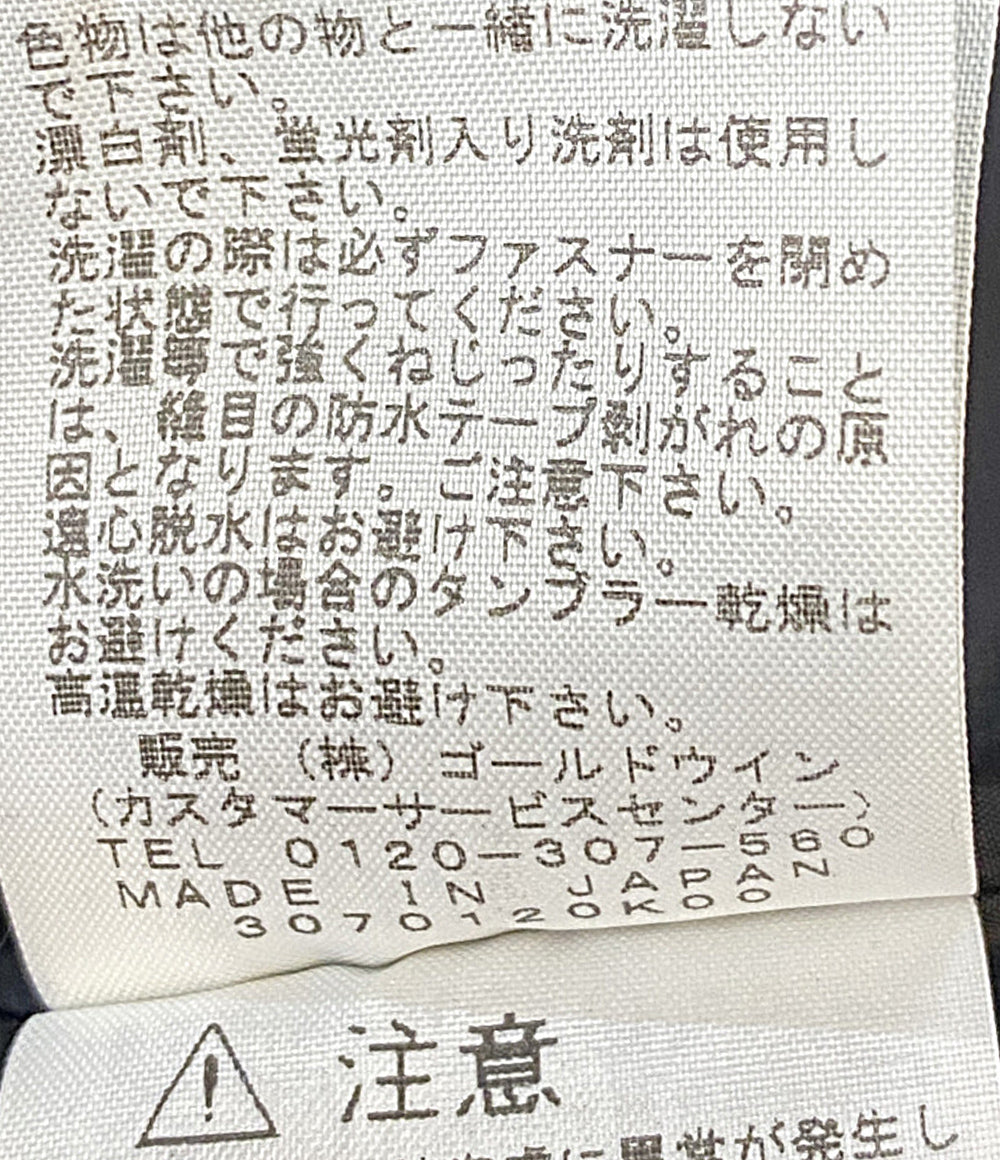 色物は他の物と一緒に洗濯しない
で下さい。
漂白剤、蛍光剤入り洗剤は使用し
ないで下さい。
洗濯の際は必ずファスナーを閉め
た状態で行ってください。
洗濯等で強くねじったりすること
は、縫目の防水テープ剥がれの原
因となります。ご注意下さい。
遠心脱水はお避け下さい。
水洗いの場合のタンブラー乾燥は
お避けください。
高温乾燥はお避け下さい。
販売 (株)ゴールドウイン
(カスタマーサービスセンター)
TEL 0120-307-560
MADE IN JAPAN
307012OKOO
注意
に異常が発生し